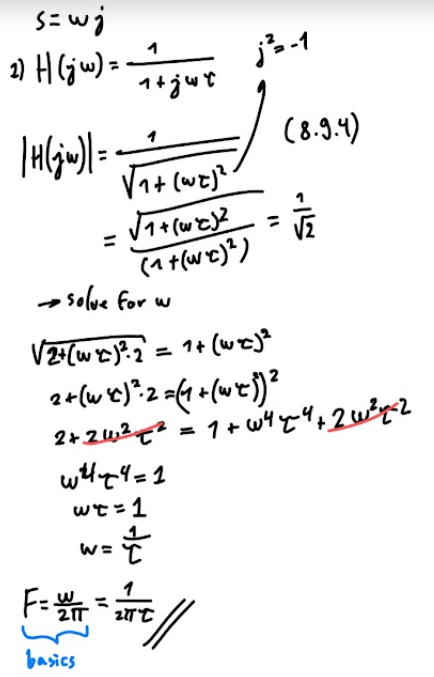 s = wj
2) H(jw) = 1/(1+jwτ)
j² = -1
|H(jw)| = 1/√(1+(wτ)²)
(8.9.4)
= √(1+(wτ)²)/(1+(wτ)²) = 1/√2
→ solve for w
√(2+(wτ)²·2) = 1+(wτ)²
2+(wτ)²·2 = (1+(wτ)²)²
2+2w²τ² = 1+w⁴τ⁴+2w²τ²
w⁴τ⁴ = 1
wτ = 1
w = 1/τ
F = w/2π = 1/2πτ //
basics